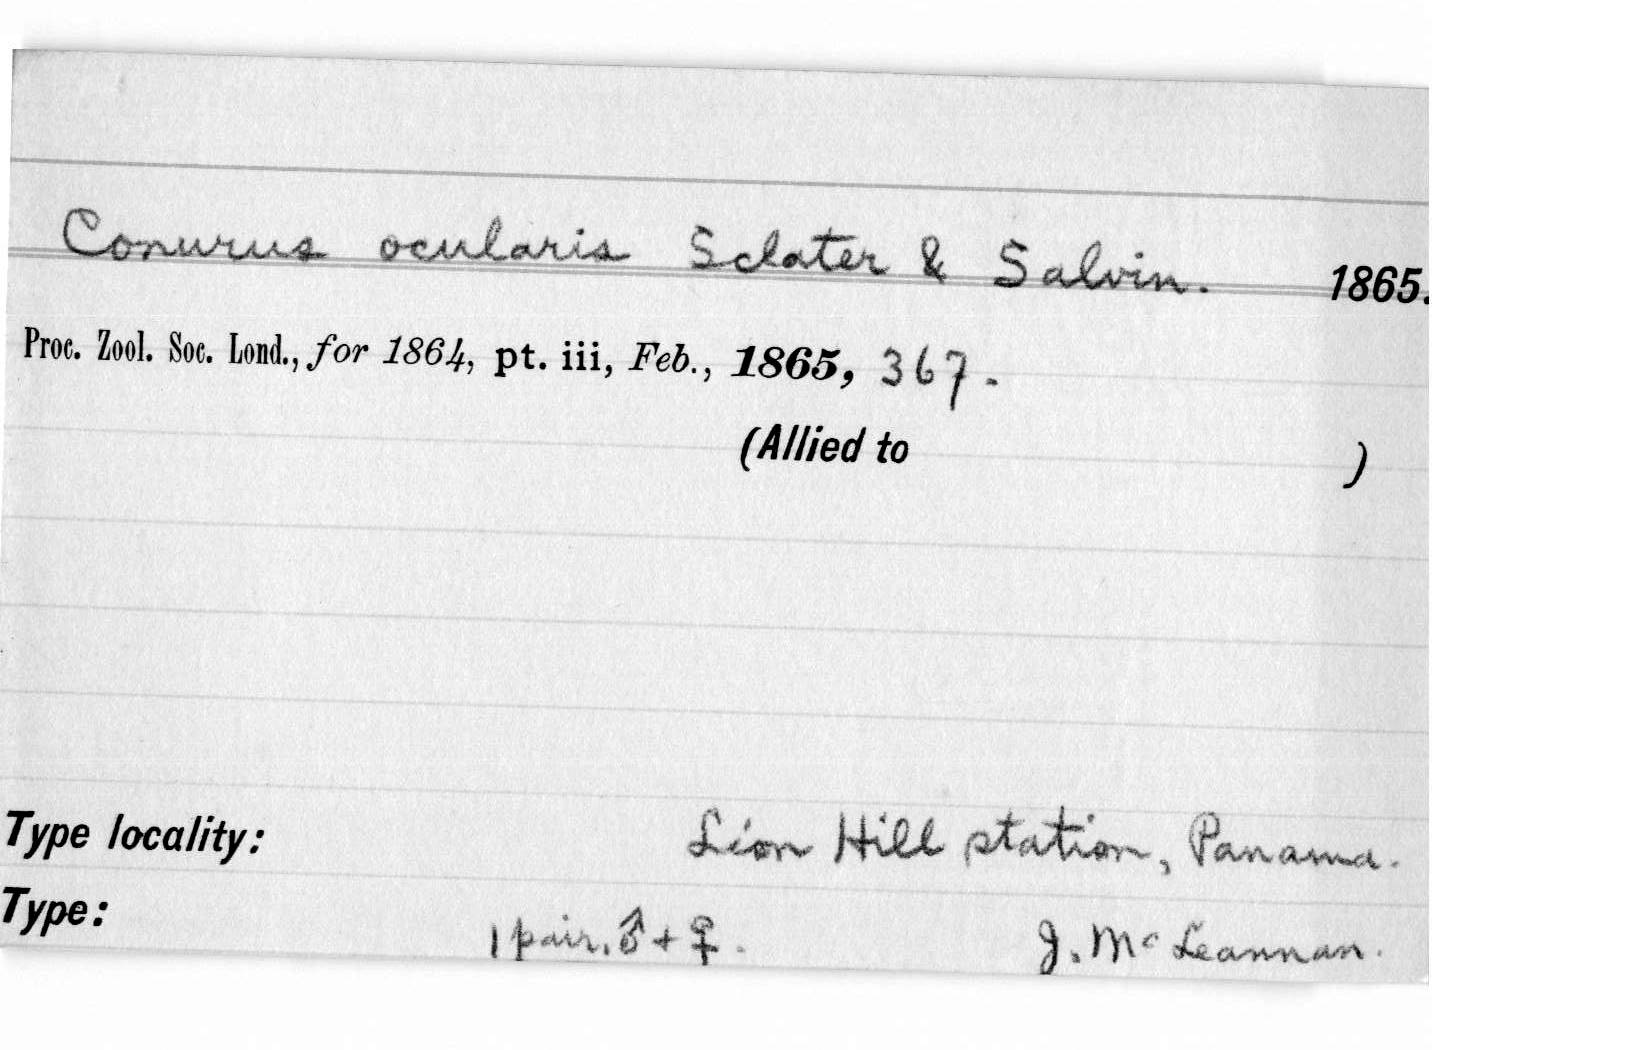 Conurus ocularis Sclater & Salvin. 1865.
Proc. Zool. Soc. Lond., for 1864, pt. iii, Feb., 1865, 367.
(Allied to )
Type locality: Lion Hill station, Panama.
Type: 1 pair, ♂ + ♀. J. McLeannan.